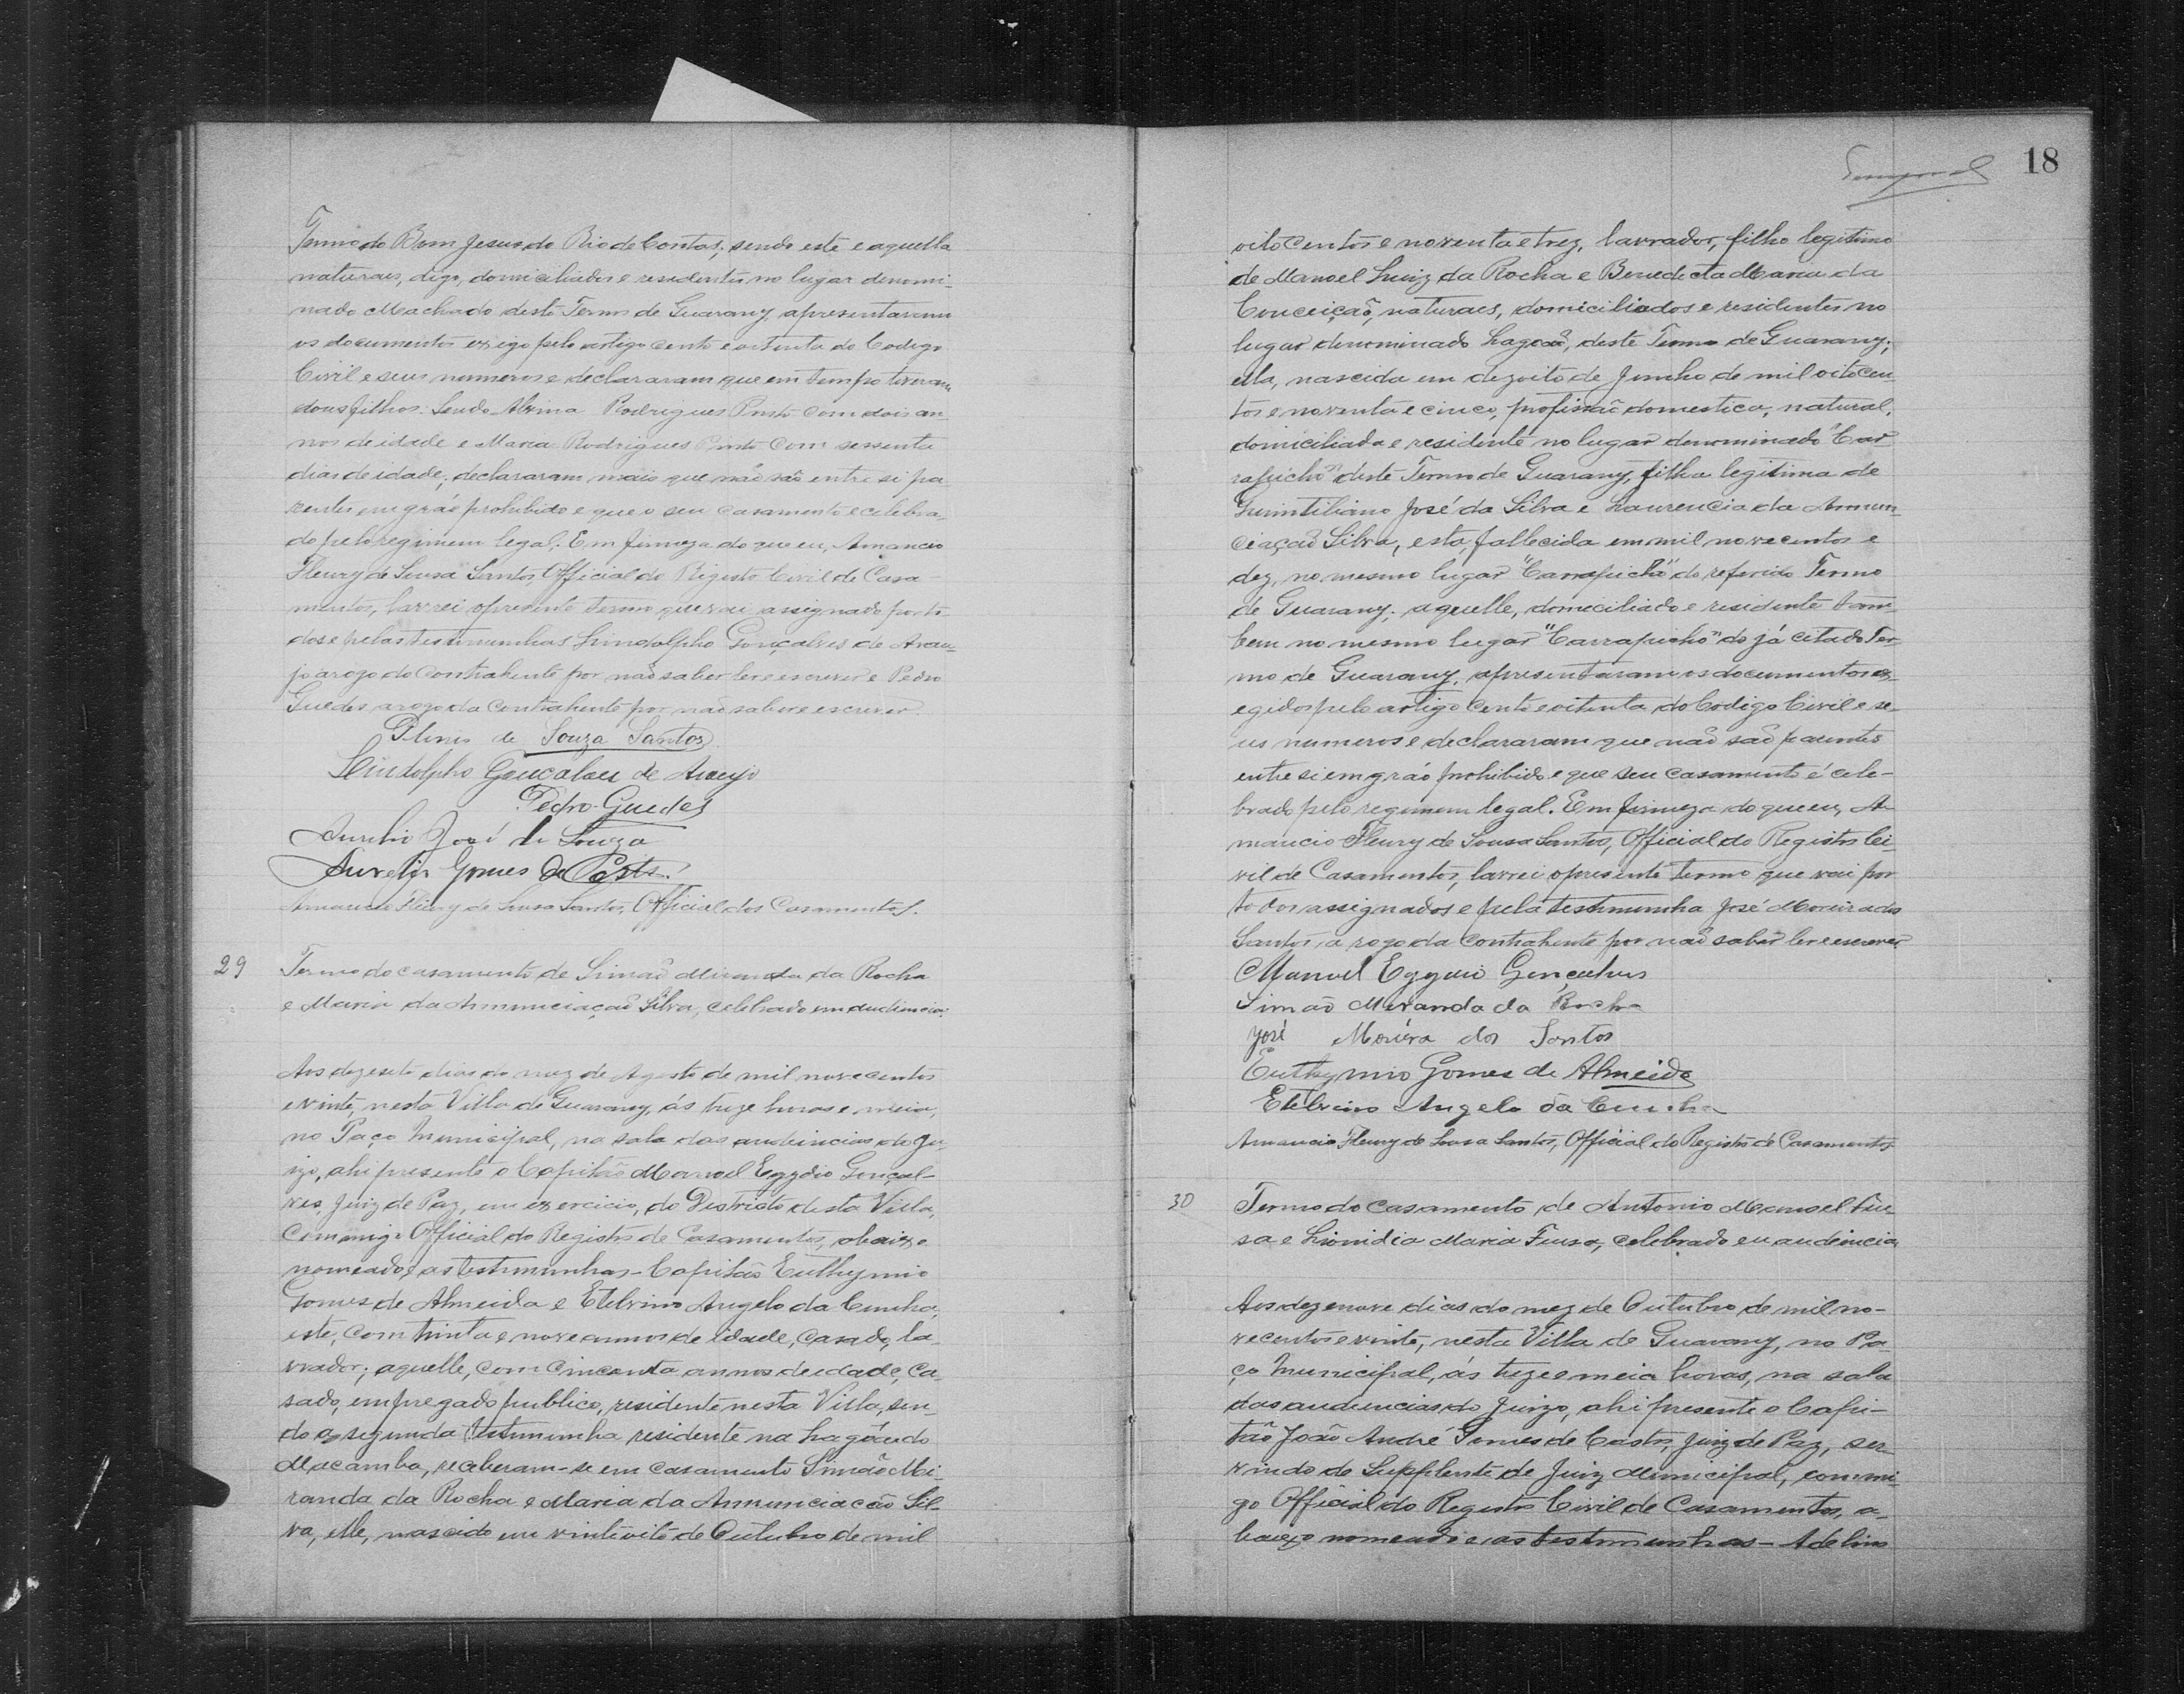 Termo do Bom Jesus do Rio de Contas; sendo este e aquella
naturaes, digo, domiciliados e residentes no lugar denomi-
nado Machado deste Termo de Guarany, apresentaram
os documentos exigo pelo artigo cento e oitenta do Codigo
Civil e seus numeros e declararam que em tempo tiveram
dous filhos: Sendo Alvina Rodrigues Pinto com dois an-
nos de idade e Maria Rodrigues Pinto com sessenta
dias de idade; declararam mais que não são entre si pa
rentes em gráo prohibido e que o seu casamento e celebra-
do pelo regimem legal. Em firmeza do que eu, Amancio
Fleury de Sousa Santos, Official do Registo Civil de Casa
mentos, lavrei o presente termo que vai assignado por to-
dos e pelas testimunhas Lindolpho Gonçalves de Arau-
jo a rogo do Contrahente por não saber ler e escrever e Pedro
Guedes a rogo da Contrahente por não saber e escrever.
Plinio de Souza Santos
Lindolpho Goncalves de Araujo
Pedro Guedes
Aurelio José de Souza
Aurelio Gomes da Costa.
Amancio Fleury de Sousa Santos, Official dos Casamentos.
29 Termo do casamento de Simaõ Miranda da Rocha
e Maria da Annunciaçaõ Silva, celebrado em audiencia.
Aos dezesete dias do mez de Agosto de mil novecentos
e vinte, nesta Villa de Guarany, ás treze horas e meia,
no Paço Municipal, na sala das audiencias do Ju-
izo, ahi presente o Capitão Manoel Egydio Gonçal-
ves, Juiz de Paz, em exercicio, do Districto desta Villa,
Commigo Official do Registo de Casamentos, abaixo
nomeado, e as testimunhas - Capitão Euthymio
Gomes de Almeida e Etelvino Angelo da Cunha,
este, com trinta e nove annos de idade, casado, la-
vrador; aquelle, com cincoenta annos de idade, ca-
sado, empregado publico, residente nesta Villa, sen-
do a segunda testimunha residente na Lagôa do
Macambo, receberam-se em casamento Simão Mi-
randa da Rocha e Maria da Annunciacão Sil-
va, elle, nascido em vinte oito de Outubro de mil
18
oito centos e noventa e trez, lavrador, filho legitimo
de Manoel Luiz da Rocha e Benedicta Maria da
Conceição, naturaes, domiciliados e residentes no
lugar denominado Lagoa, deste Termo de Guarany;
ella, nascida em dezoito de Junho de mil oito cen-
tos e noventa e cinco, profissão domestica, natural,
domiciliada e residente no lugar denominado "Car
rapicho" deste Termo de Guarany, filha legitima de
Quintiliano José da Silva e Laurencia da Annun-
ciaçaõ Silva, esta, fallecida em mil novecentos e
dez, no mesmo lugar "Carrapicho" do referido Termo
de Guarany; aquelle, domiciliado e residente tam-
bem no mesmo lugar "Carrapicho" do já citado Ter-
mo de Guarany, apresentaram os documentos ex-
egidos pelo artigo cento e oitenta do Codigo Civil e se-
us numeros e declararam que não são parentes
entre si em gráo prohibido e que seu casamento é cele-
brado pelo regimem legal. Em firmeza do que eu, A-
mancio Fleury de Sousa Santos, Official do Registro Ci-
vil de Casamentos, lavrei o presente termo que vai por
todos assignados e pela testimunha José Moreira dos
Santos, a rogo da contrahente por não saber ler e escrever
Manuel Egydio Gonçalves
Simaõ Miranda da Rocha
José Moreira dos Santos
Euthymio Gomes de Almeida
Etelvino Angelo da Cunha
Amancio Fleury de Sousa Santos, Official do Registo de Casamentos
30 Termo do casamento de Antonio Manoel Fiu
sa e Lionidia Maria Fiusa, celebrado em audiencia
Aos dezenove dias do mez de Outubro de mil no-
vecentos e vinte, nesta Villa de Guarany, no Pa-
ço Municipal, ás treze e meia horas, na sala
das audiencias do Juizo, ahi presente o Capi-
tão João André Gomes de Castro, Juiz de Paz, ser-
vindo de Supplente de Juiz Municipal, commi-
go Official do Registo Civil de Casamentos, a-
baixo nomeado e as testimunhas - Adelino